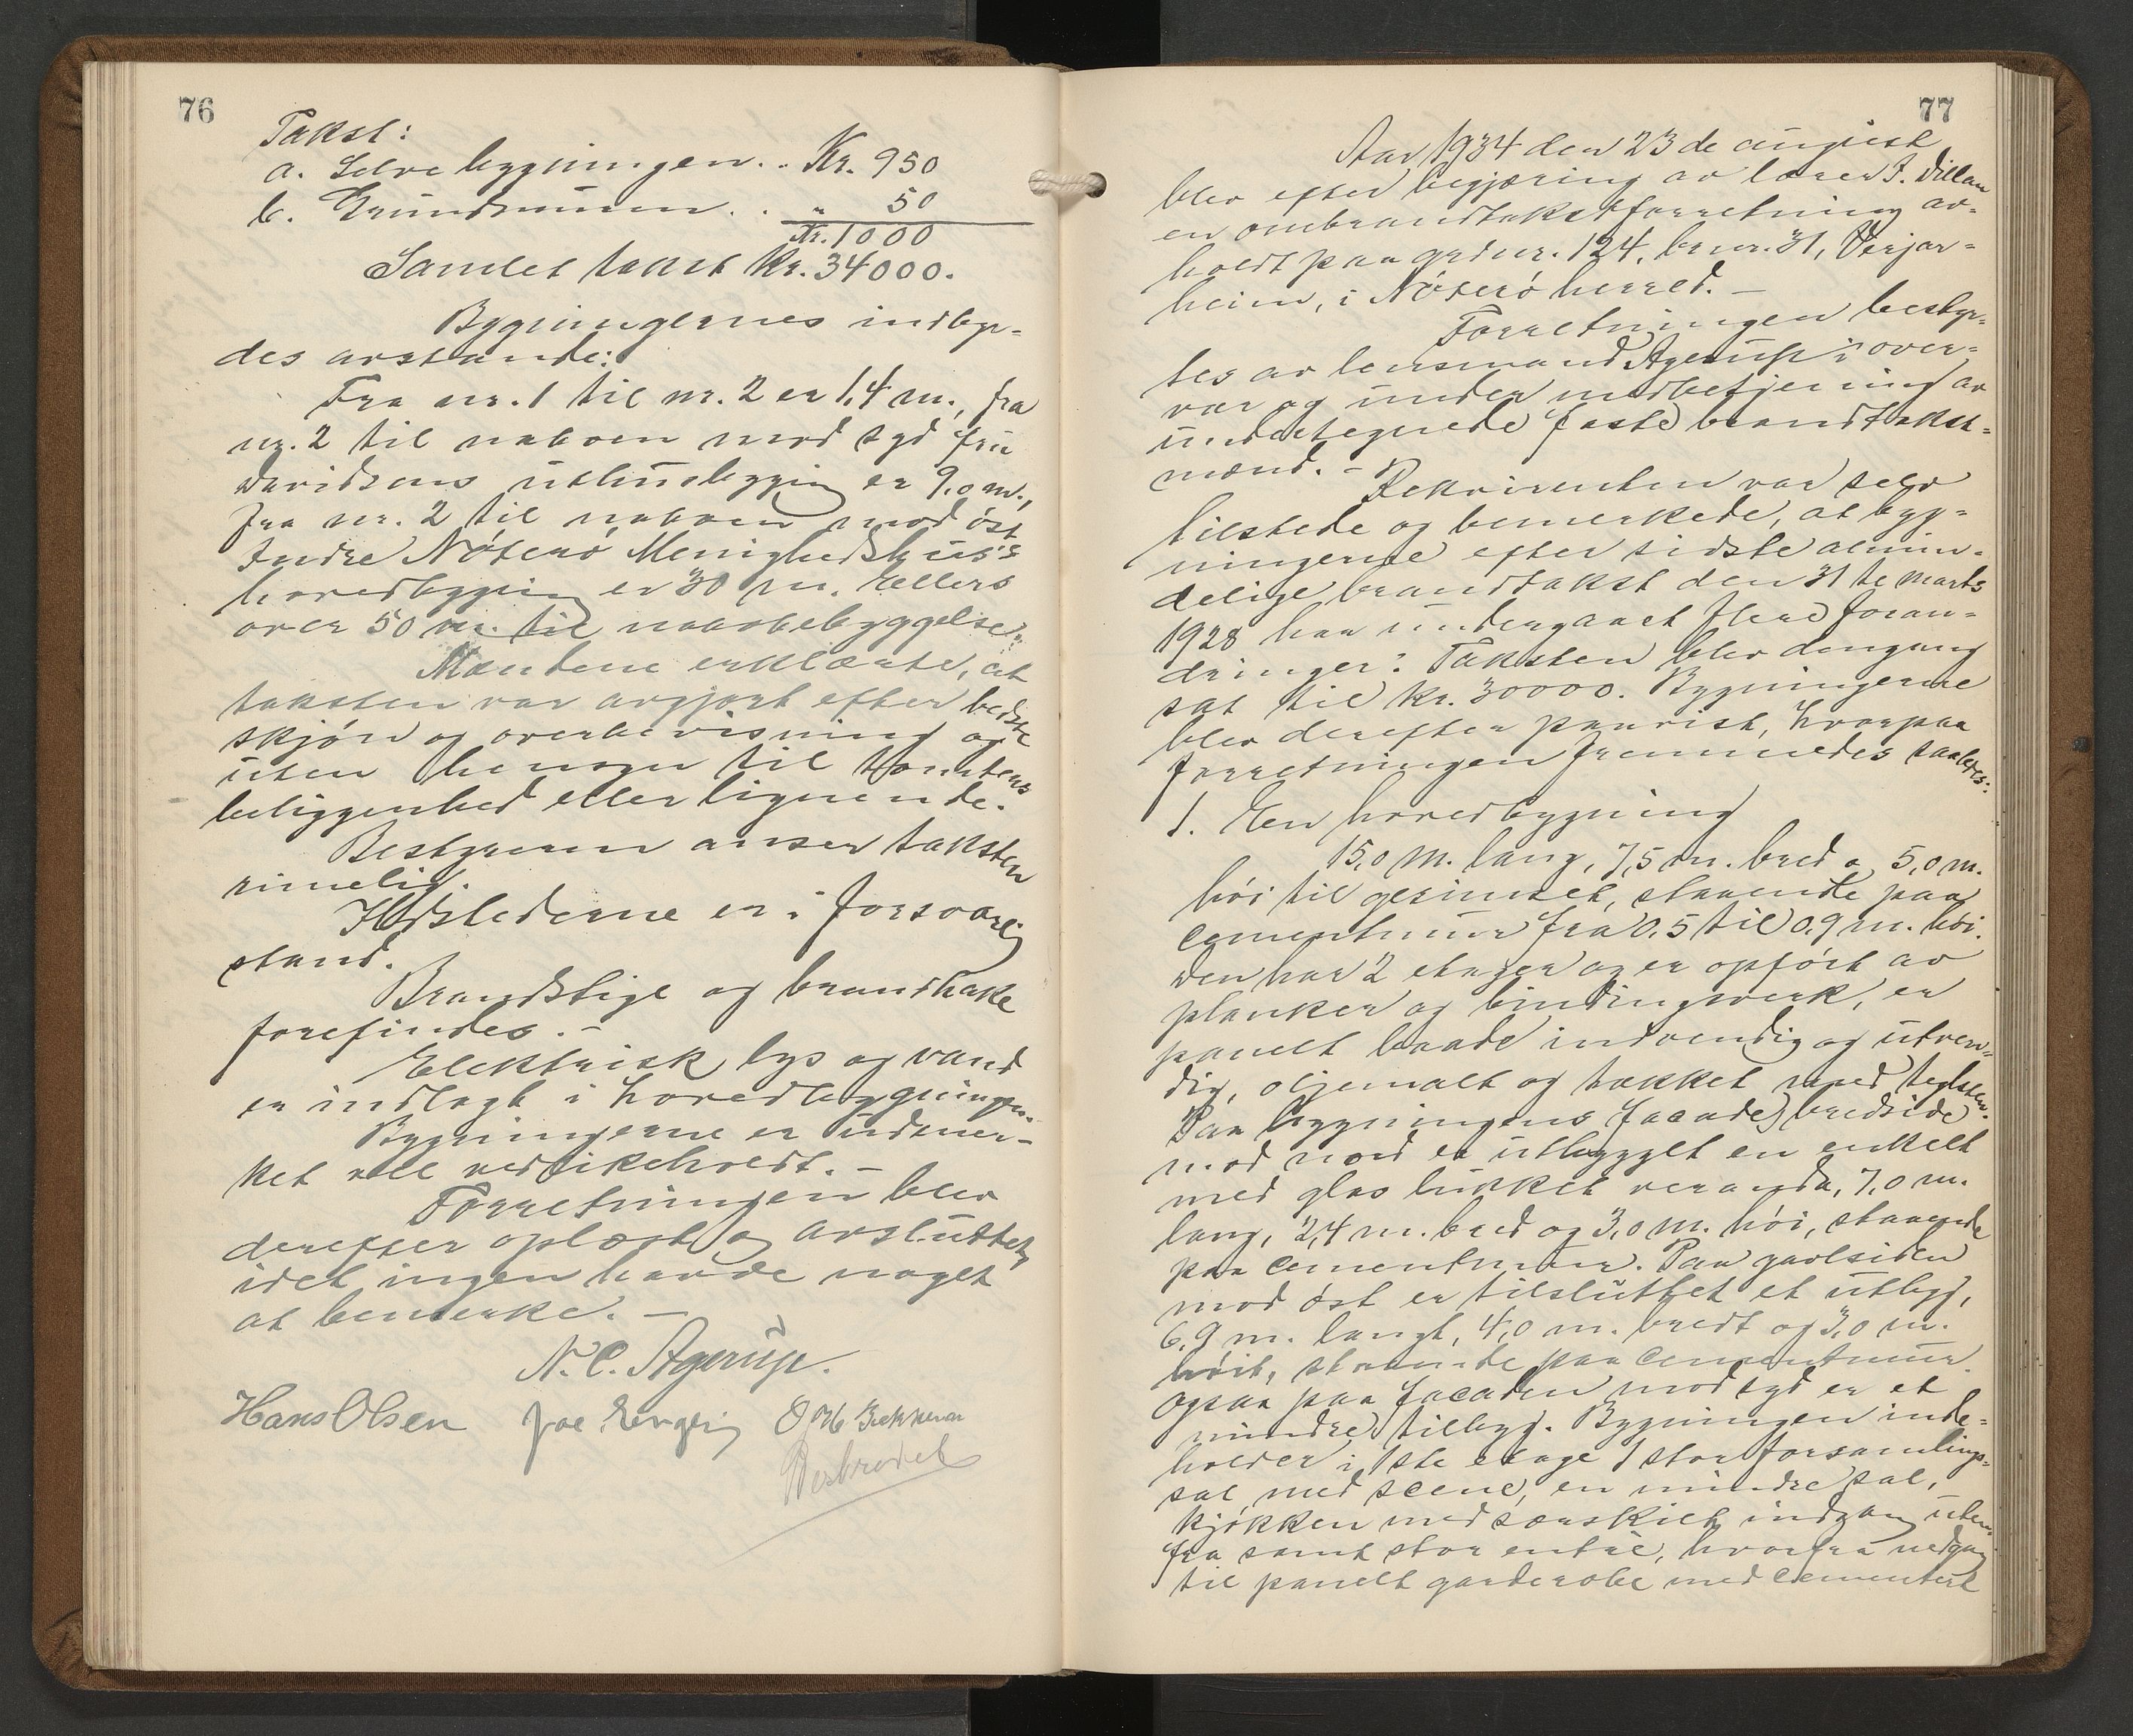 76
Takst:
a. Selve bygningen . . Kr. 950
b. Grundmuren . . " 50
Kr. 1000
Samlet takst Kr. 34000.
Bygningernes indbyr-
des avstande:
Fra nr. 1 til nr. 2 er 1,4 m., fra
nr. 2 til naboen mod syd fru
Davidsens uthusbygging er 9,0 m.,
fra nr. 2 til naboen mod øst
Indre Nøterø Menighedshus's
hovedbygging er 30 m. Ellers
over 50 m. til nabobebyggelse.
Mændene erklærte, at
taksten var avgjort efter bedste
skjøn og overbevisning og
uten hensyn til tomtens
beliggenhed eller lignende.
Bestyreren anser taksten
rimelig.
Ildstederne er i forsvarlig
stand.
Brandstige og brandhake
forefindes. -
Elektrisk lys og vand
er indlagt i hovedbygningen.
Bygningerne er udmer-
ket vel vedlikeholdt. -
Forretningen blev
derefter oplæst og avsluttet,
idet ingen havde noget
at bemerke. -
N. C. Agerup.
Hans Olsen
77
Aar 1934 den 23 de august
blev efter begjæring av lærer I. Dillan
en ombrandtakstforretning av-
holdt paa grdnr. 124, brnr. 31, Verjar-
heim, i Nøterø herred. -
Forretningen bestyr-
tes av lensmand Agerup i over-
vær og under medbetjening av
undertegnede faste brandtakst-
mænd. -
Rekvirenten var selv
tilstede og bemerkede, at byg-
ningerne efter sidste almin-
delige brandtakst den 31 te marts
1928 har undergaaet flere foran-
dringer: Taksten blev dengang
sat til kr. 30000. Bygningerne
blev derefter paavist, hvorpaa
forretningen fremmedes saaledes:
1. En hovedbygning
15,0 m. lang, 7,5 m. bred og 5,0 m.
høi til gesimset, staaende paa
cementmur fra 0,5 til 0,9 m. høi.
Den har 2 etager og er opført av
planker og bindingsverk, er
panelt baade indvendig og utven-
dig, oljemalt og tækket med teglsten.
Paa bygningens facade) bredside
mod nord er utbygget en enkelt
med glas lukket veranda, 7,0 m.
lang, 2,4 m. bred og 3,0 m. høi, staaende
paa cementmur. Paa gavlsiden
mod øst er tilsluttet et utbyg,
6,9 m. langt, 4,0 m. bredt og 3,0 m.
høit, staaende paa cementmur.
Ogsaa paa facaden mod syd er et
mindre tilbyg. Bygningen inde-
holder i 1ste etage 1 stor forsamlings-
sal med scene, en mindre sal,
kjøkken med særskilt indgang uten-
fra samt stor entre, hvorfra nedgang
til panelt garderobe med cementert